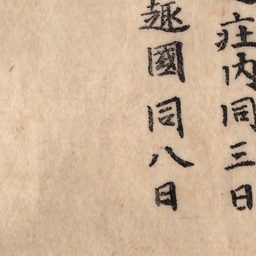 庄内同三日
趣國同八日